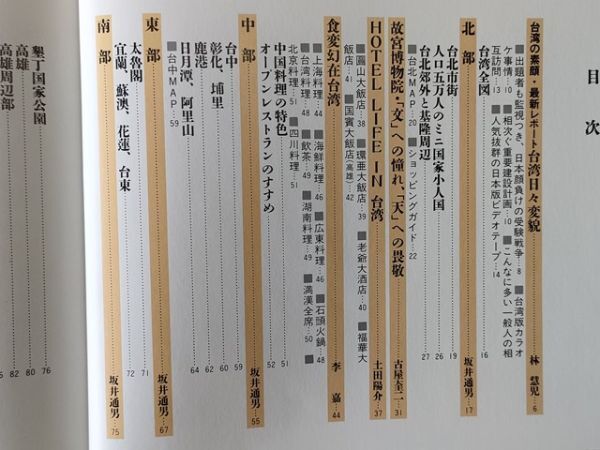 目次
台湾の素顔・最新レポート台湾日々変貌…林 慧児…6
■出題者も監視つき、日本顔負けの受験戦争…8 ■台湾版カラオ
ケ事情…10 ■相次ぐ重要建設計画…10 ■こんなに多い一般人の相
互訪問…13 ■人気抜群の日本版ビデオテープ…14
台湾全図…16
北部…坂井通男…17
台北市街…19
人口五万人のミニ国家小人国…26
台北郊外と基隆周辺…27
■台北MAP…20 ■ショッピングガイド…22
故宮博物院・「文」への憧れ、「天」への畏敬…古屋奎二…31
HOTEL LIFE IN 台湾…土田陽介…37
■圓山大飯店…38 ■環亜大飯店…39 ■老爺大酒店…40 ■福華大
飯店…41 ■国賓大飯店(高雄)…42
食変幻在台湾…李 嘉…44
■上海料理…44 ■海鮮料理…46 ■広東料理…46 ■石頭火鍋…48
■台湾料理…48 ■飲茶…49 ■湖南料理…49 ■満漢全席…50 ■
北京料理…51 ■四川料理…51
中国料理の特色…51
オープンレストランのすすめ…52
中部…坂井通男…55
台中…59
彰化、埔里…60
鹿港…62
日月潭、阿里山…64
■台中MAP…59
東部…坂井通男…67
太魯閣…71
宜蘭、蘇澳、花蓮、台東…72
南部…坂井通男…75
墾丁国家公園…76
高雄…80
高雄周辺部…82